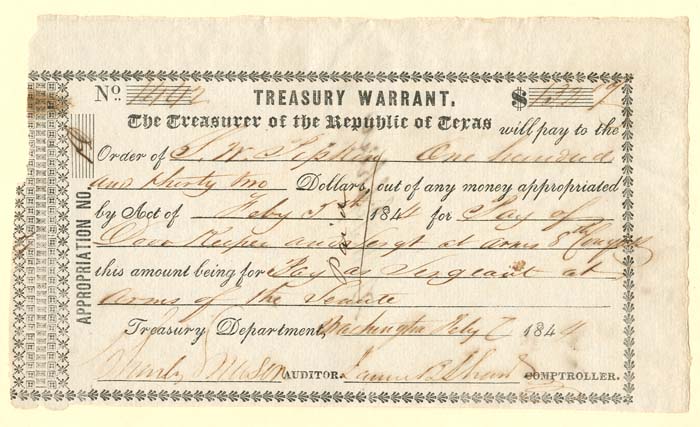 No. 1442 TREASURY WARRANT. $132
The Treasurer of the Republic of Texas will pay to the
Order of S. W. One hundred
and thirty two Dollars, out of any money appropriated
by Act of Feby 5th 1844 for Pay of
Door Keeper and Sergt at arms 8th Congress
this amount being for Pay as Sergeant at
Arms of the Senate
Treasury Department, Washington Feby 7 1844
AUDITOR. James B Shaw COMPTROLLER.
APPROPRIATION NO.
Paid